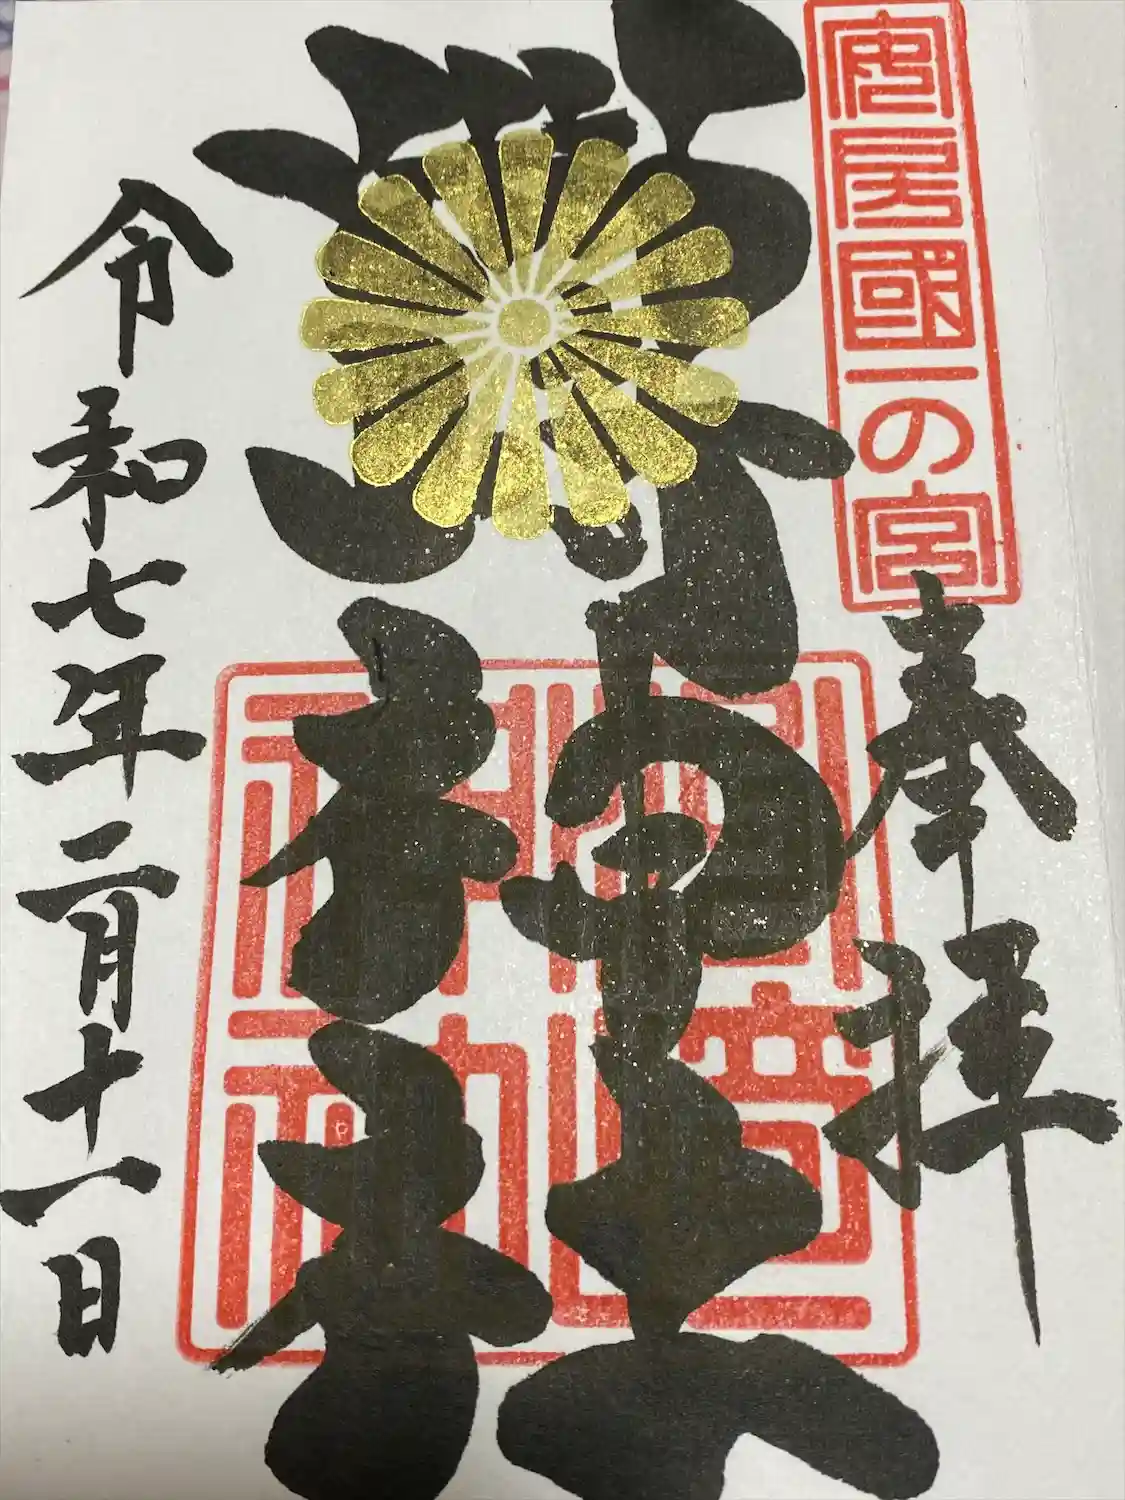 安房國一の宮
奉拝
洲崎神社
洲崎神社
令和七年二月十一日